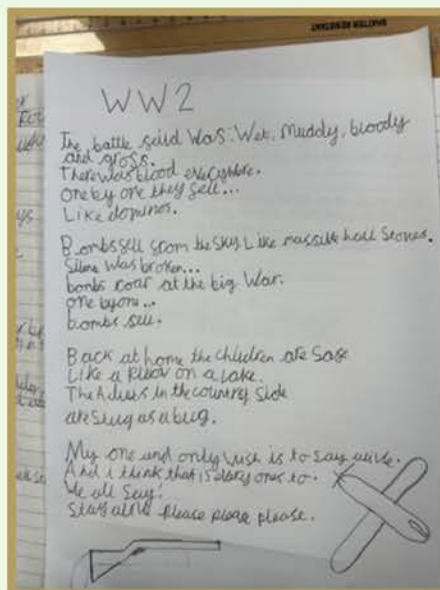 SHATTER RESISTANT
WW2
The battle seild was: Wet, Muddy, bloody
and gross.
There was blood
One by one they sell...
Like dominos.
Bombs sell srom the sky Like massive hail stones.
Silene was broken...
bombs roar at the big War.
one by one...
bombs sell.
Back at home the children are sase
Like a on a Lake.
The in the country side
are snug as a bug.
My one and only wish is to say alive.
And i think that is ones to.
We all say!
Stay alive please please please.